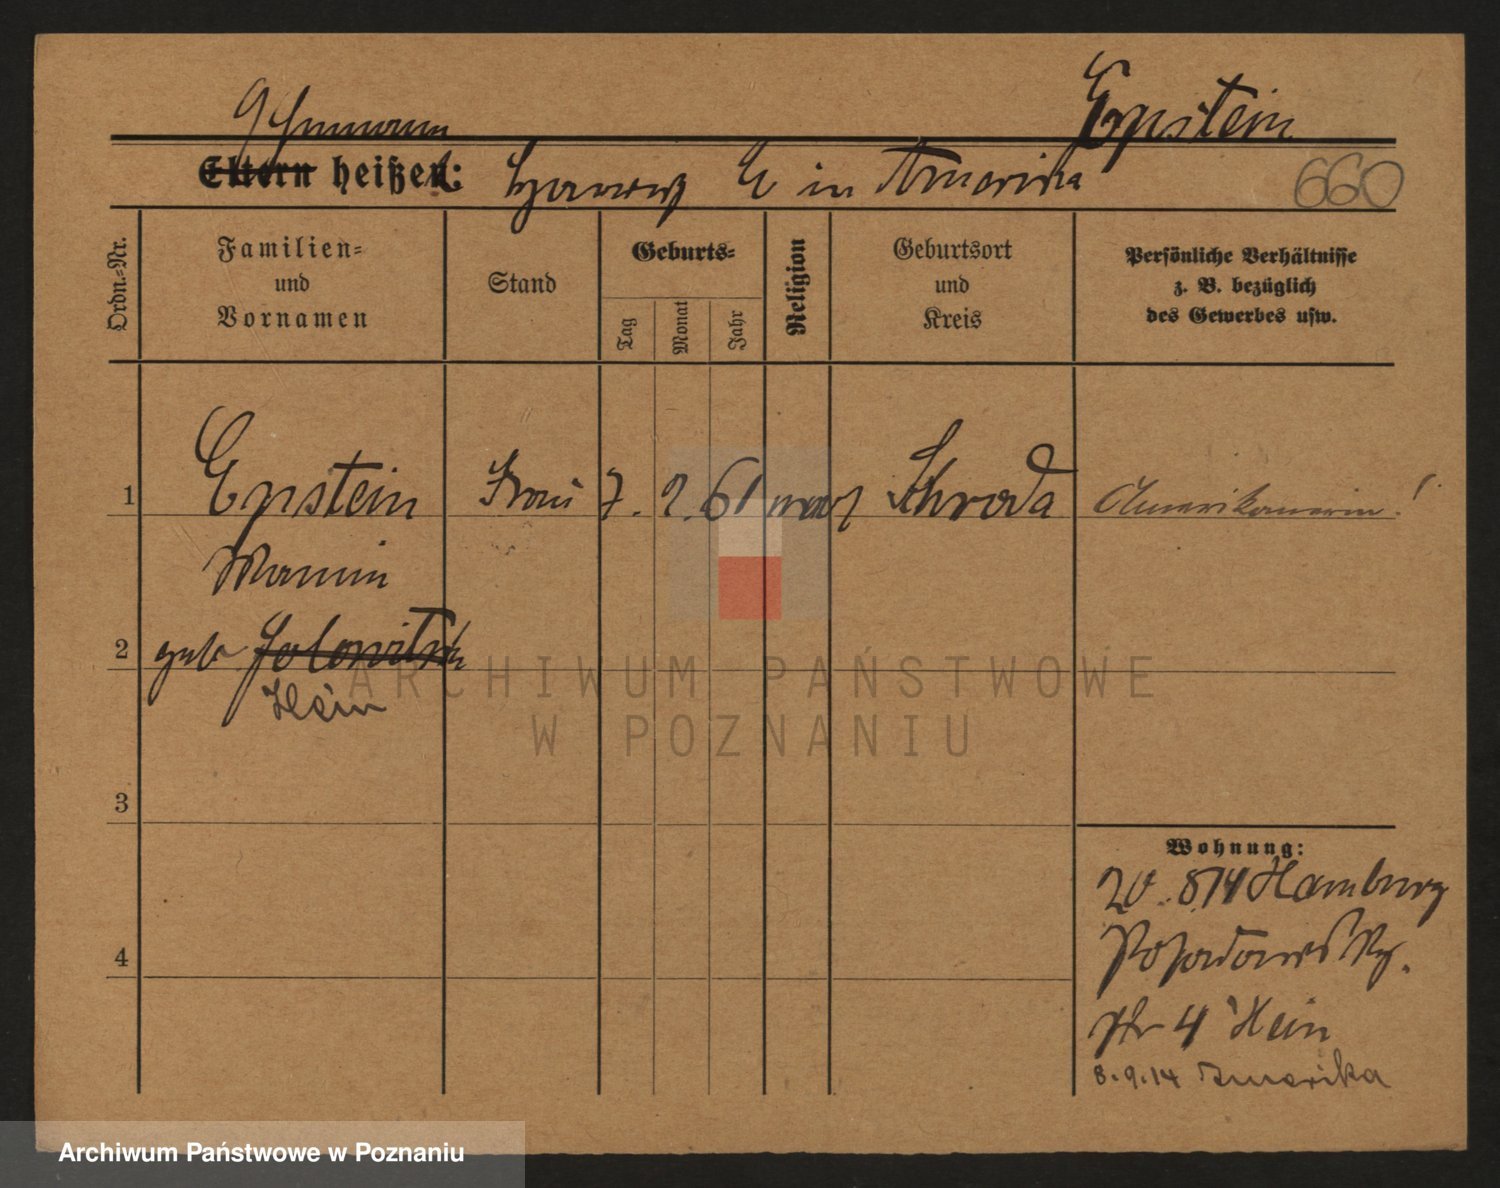 Epstein
Ehemann
Eltern heißen: Harris E in Amerika
660
Ordn.-Nr.
Familien-
und
Vornamen
Stand
Geburts-
Tag
Monat
Jahr
Religion
Geburtsort
und
Kreis
Persönliche Verhältnisse
z. B. bezüglich
des Gewerbes usw.
1 Epstein Frau 7. 2. 61 mos Schroda Amerikanerin!
2 geb.
Hein
3
4
Wohnung:
20.814 Hamburg
Posadowsky.
str 4 Hein
8.9.14 Amerika
ARCHIWUM PAŃSTWOWE
W POZNANIU
Archiwum Państwowe w Poznaniu